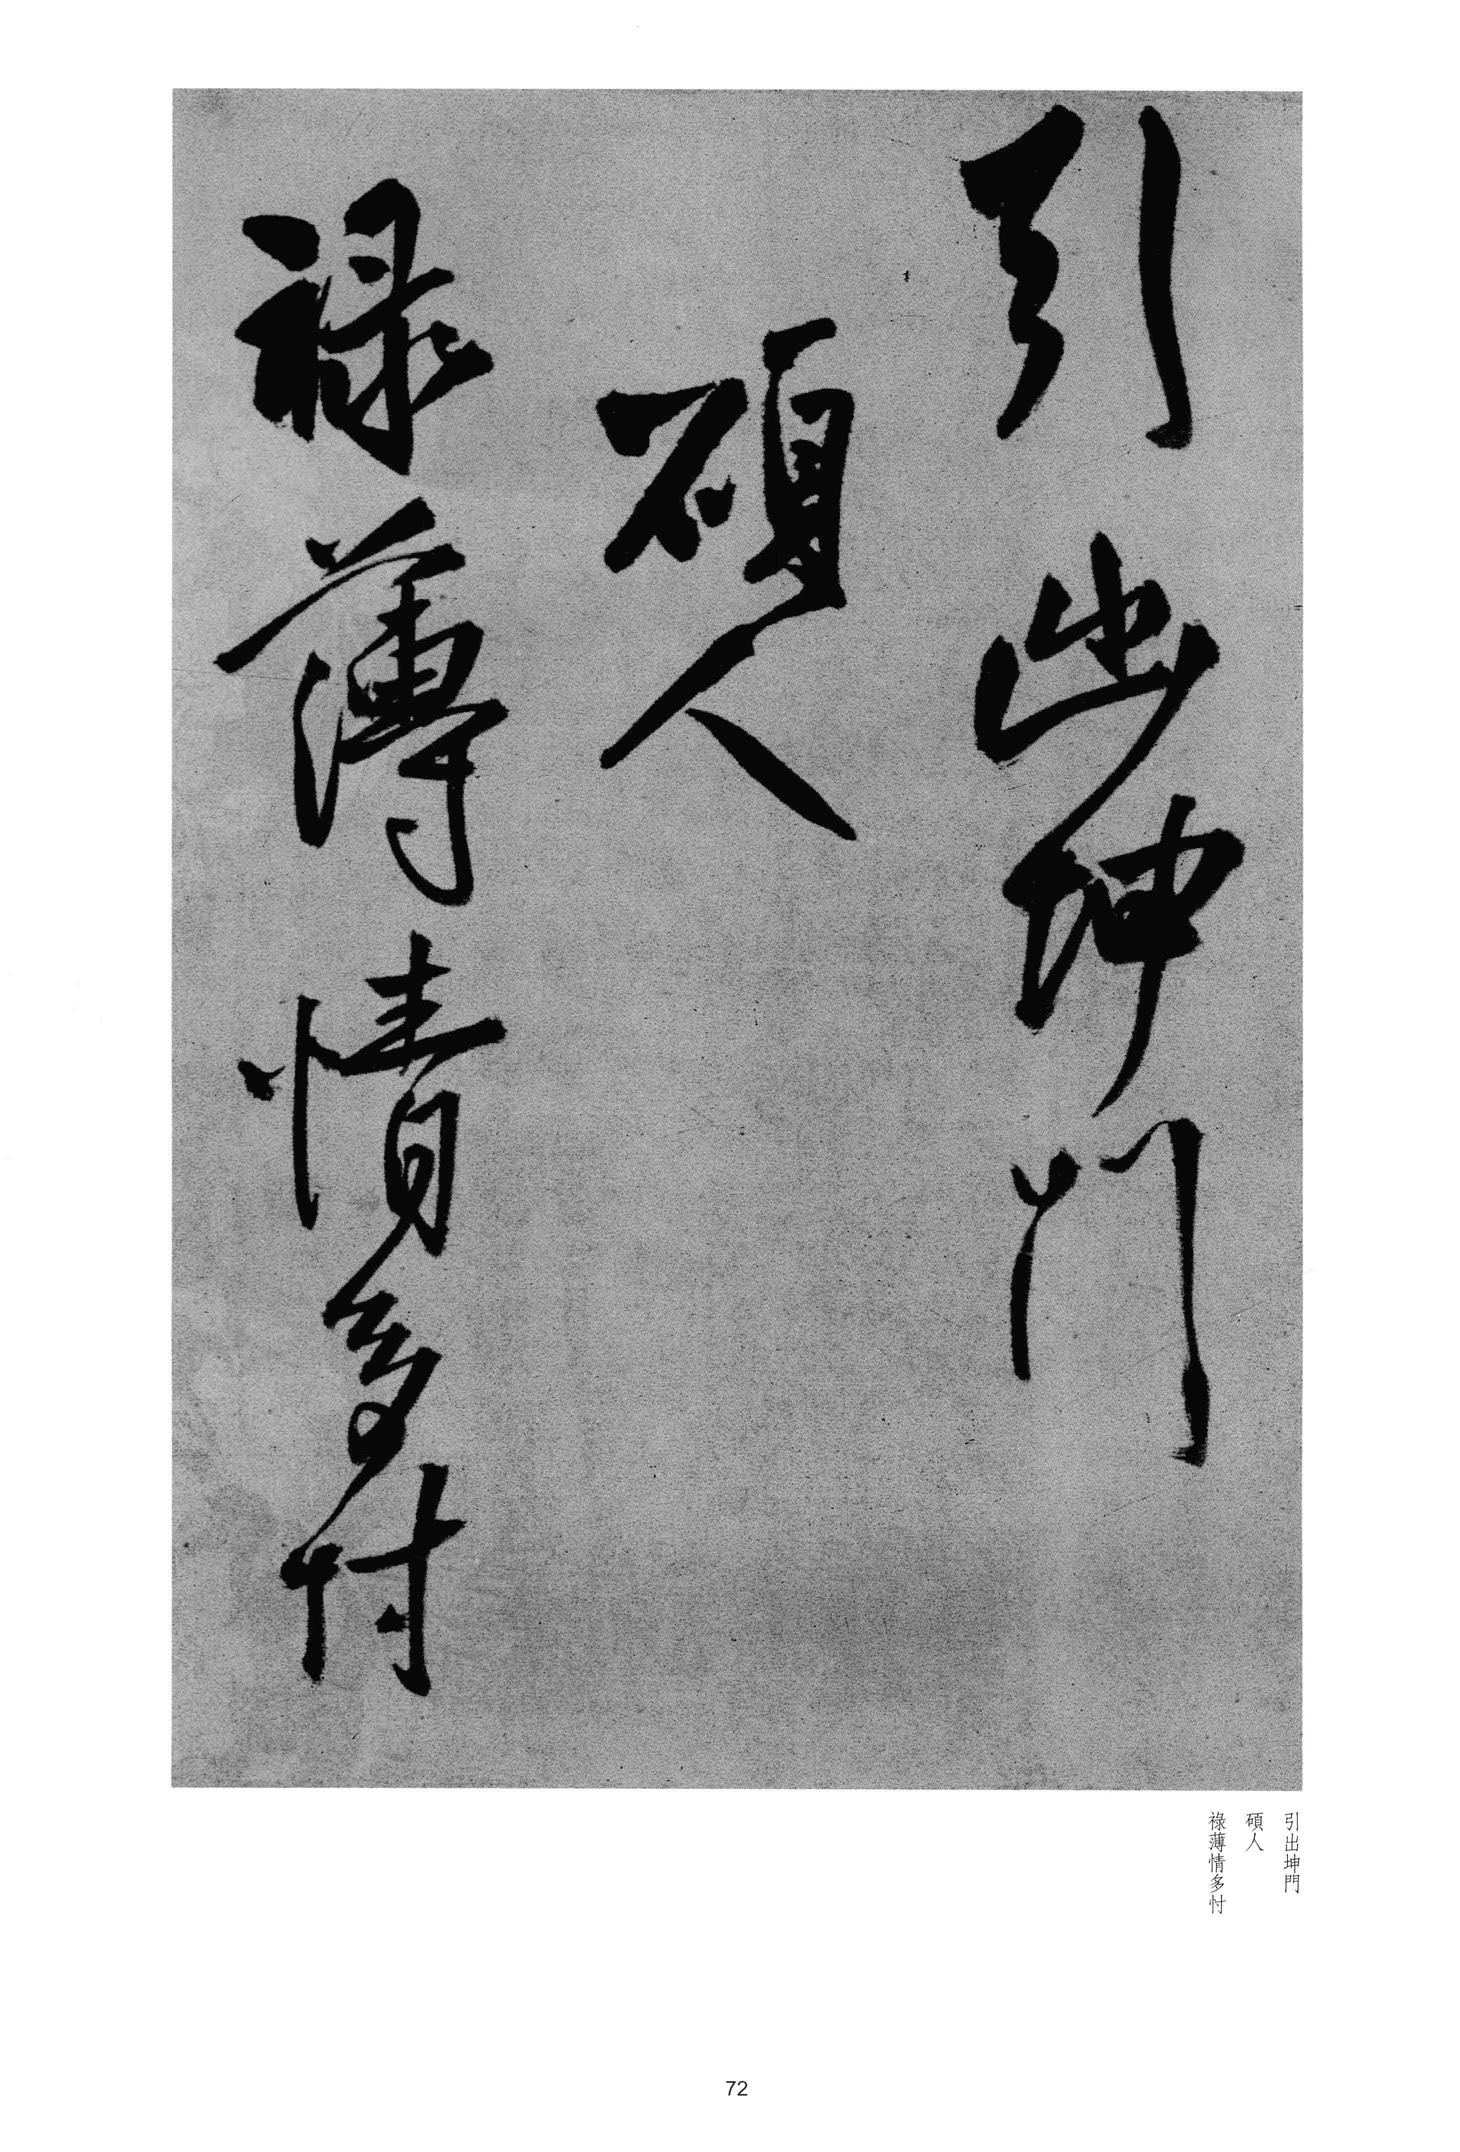 引出坤門
碩人
祿薄情多忖
引出坤門
碩人
祿薄情多忖
72